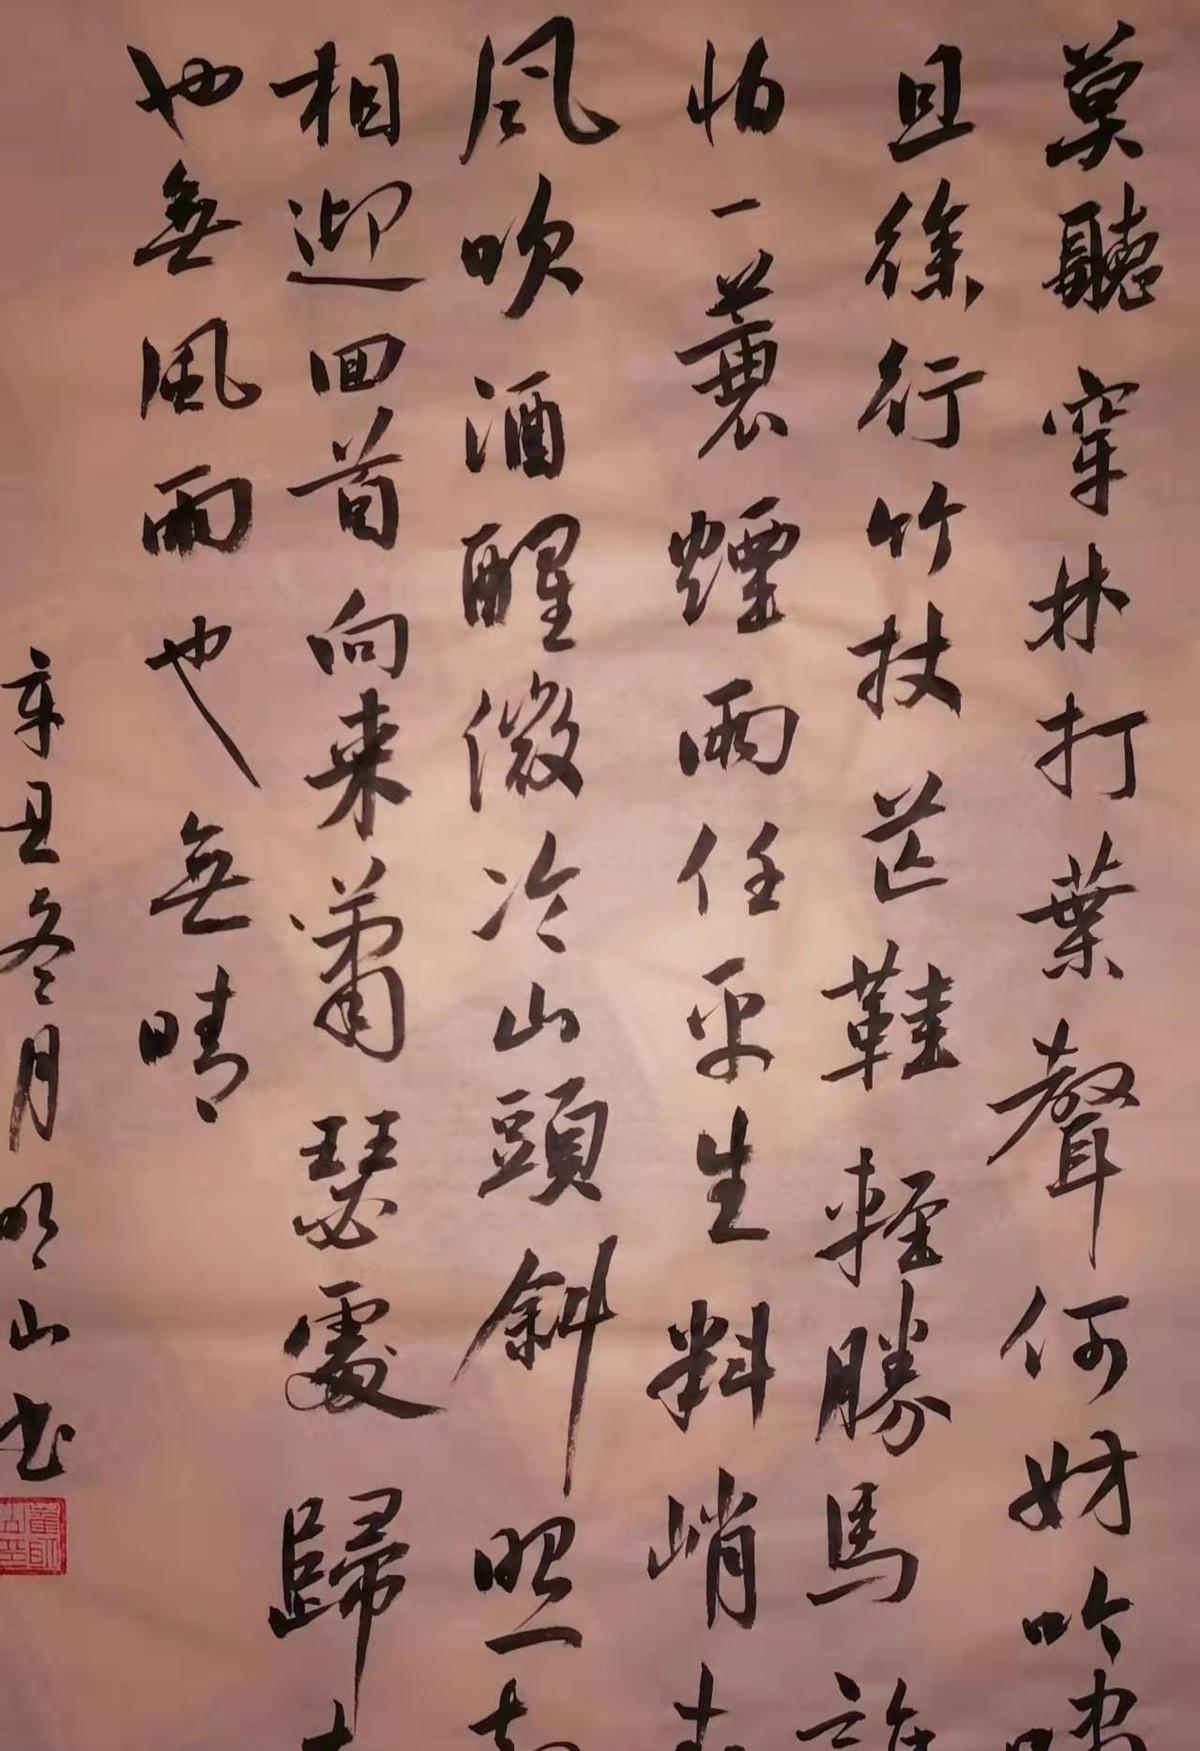 莫聽穿林打葉聲何妨吟嘯
且徐行竹杖芒鞋輕勝馬誰
怕一蓑煙雨任平生料峭春
风吹酒醒微冷山頭斜照却
相迎回首向来蕭瑟處歸去
也無風雨也無晴
辛丑冬月明山书